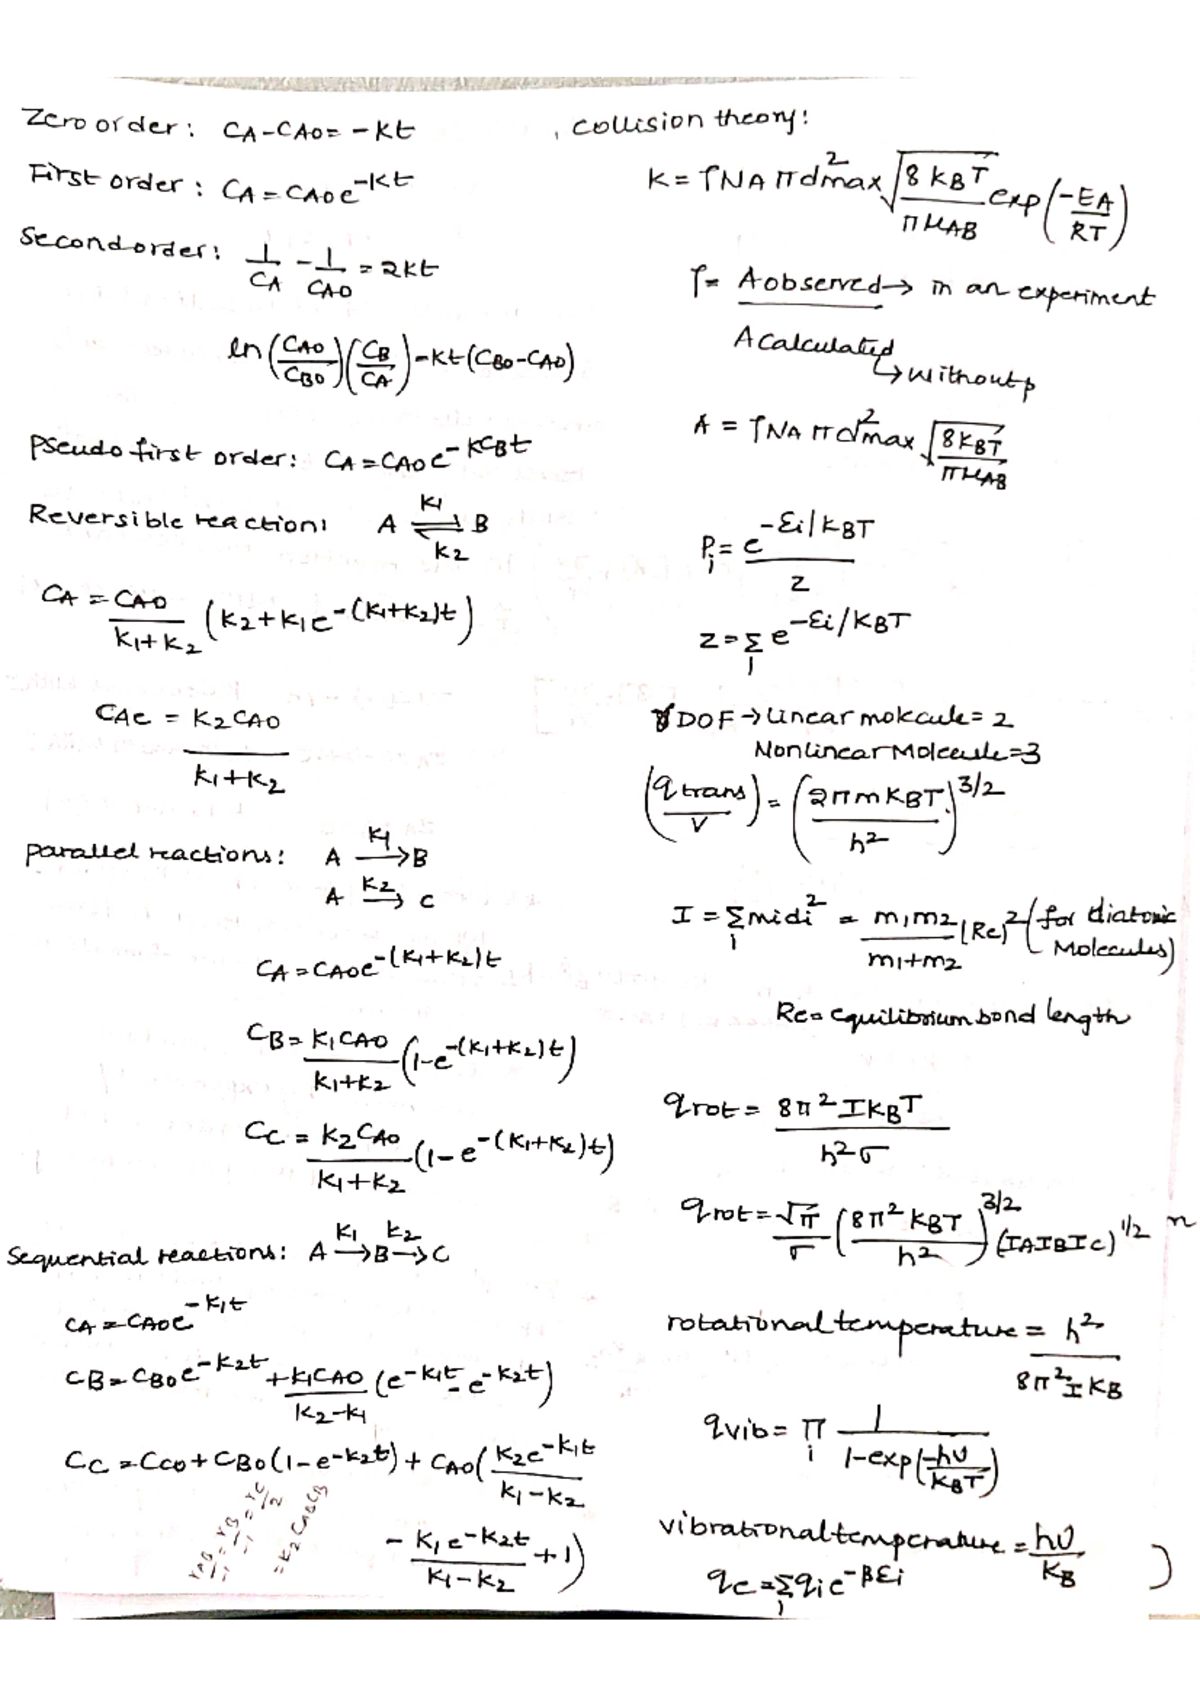 Zero order: CA-CAO= -Kt
First order: CA = CAO e^-Kt
Second order: 1/CA - 1/CAO = 2Kt
ln(CAO/CBO)(CB/CA) = Kt(CBO-CAO)
Pseudo first order: CA = CAO e^-KCBt
Reversible reaction: A ⇌ B
K1
K2
CA = CAO/(K1+K2) (K2+K1e^-(K1+K2)t)
CAe = K2CAO/(K1+K2)
parallel reactions: A →K1 B
A →K2 C
CA = CAO e^-(K1+K2)t
CB = K1CAO/(K1+K2) (1-e^-(K1+K2)t)
CC = K2CAO/(K1+K2) (1-e^-(K1+K2)t)
Sequential reactions: A →K1 B →K2 C
CA = CAO e^-K1t
CB = CBO e^-K2t + K1CAO/(K2-K1) (e^-K1t - e^-K2t)
CC = CCO + CBO(1-e^-K2t) + CAO(K2e^-K1t/(K1-K2)
- K1e^-K2t/(K1-K2) + 1)
= K2CABCB
Collision theory:
K = ρNAπd²max √(8KBT/πμAB) exp(-EA/RT)
ρ = A observed → in an experiment
A calculated
↳ without ρ
A = ρNAπd²max √(8KBT/πμAB)
Pi = e^-εi/KBT / Z
Z = Σi e^-εi/KBT
DOF → Linear molecule = 2
Nonlinear Molecule = 3
(qtrans/V) = (2πmKBT/h²)^3/2
I = Σi midi² = m1m2/(m1+m2) (Re)² (for diatomic
Molecules)
Re = equilibrium bond length
qrot = 8π²IKBT/h²σ
qrot = √π/σ (8π²KBT/h²)^3/2 (IAIBIC)^1/2 n
rotational temperature = h²/8π²IKB
qvib = πi 1/(1-exp(-hυ/KBT))
vibrational temperature = hυ/KB
qe = Σi qi e^-βεi